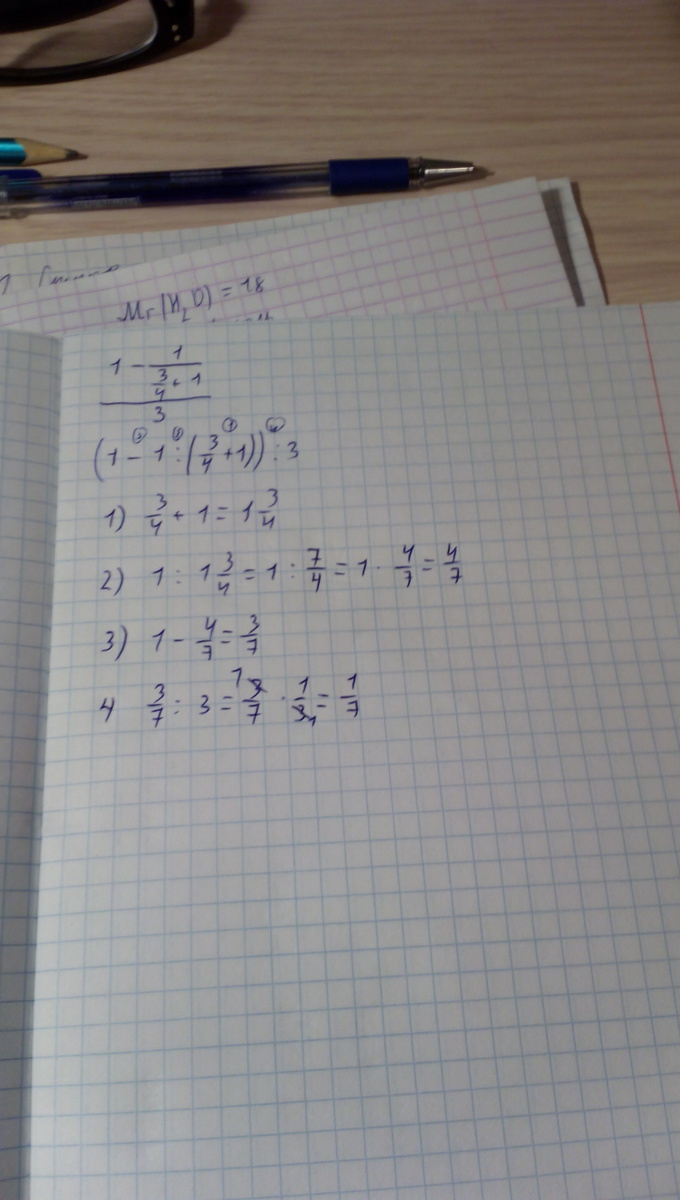 Mr(H₂O) = 18
1 - 1
3/4 + 1
3
(1 - 1 : (3/4 + 1)) : 3
1) 3/4 + 1 = 1 3/4
2) 1 : 1 3/4 = 1 : 7/4 = 1 · 4/7 = 4/7
3) 1 - 4/7 = 3/7
4 3/7 : 3 = 3/7 · 1/3 = 1/7